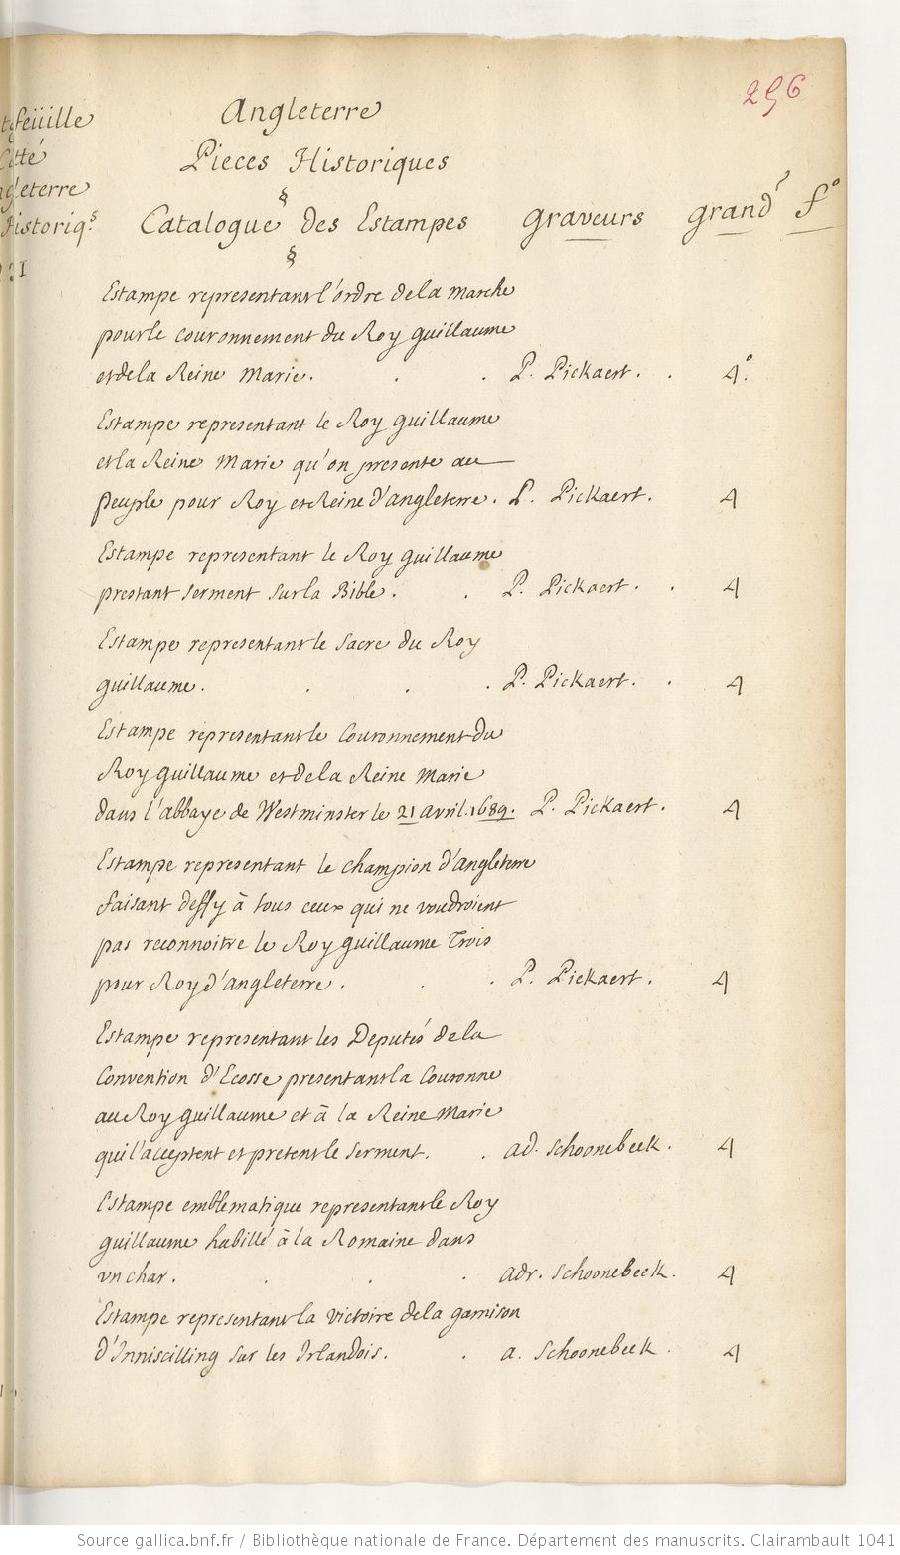 256
Angleterre
Pieces Historiques
§
Catalogue des Estampes graveurs grandr fo
§
feüille
Cotté
gleterre
Historiq.s
21
Estampe representant l'ordre de la marche
pour le couronnement du Roy guillaume
et de la Reine Marie. . . P. Pickaert. . 4.o
Estampe representant le Roy guillaume
et la Reine Marie qu'on presente au
peuple pour Roy et Reine d'angleterre. P. Pickaert. 4
Estampe representant le Roy guillaume
prestant serment sur la Bible. . P. Pickaert. . 4
Estampe representant le sacre du Roy
guillaume. . . . P. Pickaert. . 4
Estampe representant le Couronnement du
Roy guillaume et de la Reine Marie
dans l'abbaye de Westminster le 21 avril. 1689. P. Pickaert. 4
Estampe representant le champion d'angleterre
faisant deffy à tous ceux qui ne voudroient
pas reconnoitre le Roy guillaume Trois
pour Roy d'angleterre. . . P. Pickaert. 4
Estampe representant les Deputés de la
Convention d'Ecosse presentant la Couronne
au Roy guillaume et à la Reine Marie
qui l'acceptent et pretent le serment. . ad. schoonebeek. 4
Estampe emblematique representant le Roy
guillaume habillé à la Romaine dans
un char. . . . adr. schoonebeek. 4
Estampe representant la victoire de la garnison
d'Inniscilling sur les Irlandois. . a. schoonebeek. 4
Source gallica.bnf.fr / Bibliothèque nationale de France. Département des manuscrits. Clairambault 1041